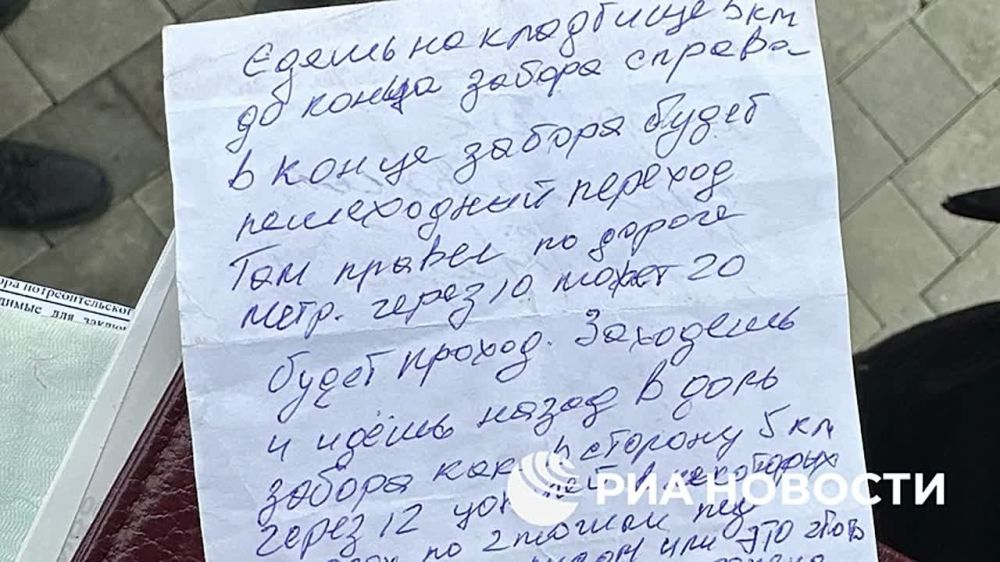 Едешь на кладбище 5 км
до конца забора справа
в конце забора будет
пешеходный переход
Там правел по дороге
метр. через 10 может 20
будет проход. Заходешь
и идёшь назад в доль
забора как в сторону 5 км
через 12 некоторых
по 2 могилы
или это
РИА НОВОСТИ
ора потребительског
димые для заклю